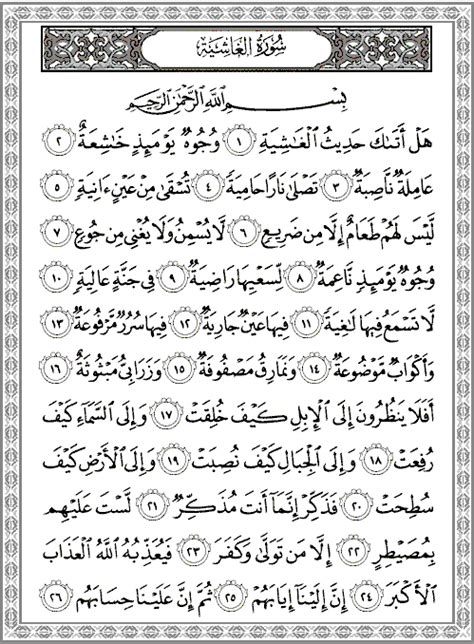 سُورَةُ الغَاشِيَةِ
بِسْمِ اللَّهِ الرَّحْمَٰنِ الرَّحِيمِ
هَلْ أَتَىٰكَ حَدِيثُ الْغَٰشِيَةِ ١ وُجُوهٌ يَوْمَئِذٍ خَٰشِعَةٌ ٢
عَامِلَةٌ نَّاصِبَةٌ ٣ تَصْلَىٰ نَارًا حَامِيَةً ٤ تُسْقَىٰ مِنْ عَيْنٍ ءَانِيَةٍ ٥
لَّيْسَ لَهُمْ طَعَامٌ إِلَّا مِن ضَرِيعٍ ٦ لَّا يُسْمِنُ وَلَا يُغْنِي مِن جُوعٍ ٧
وُجُوهٌ يَوْمَئِذٍ نَّاعِمَةٌ ٨ لِّسَعْيِهَا رَاضِيَةٌ ٩ فِي جَنَّةٍ عَالِيَةٍ ١٠
لَّا تَسْمَعُ فِيهَا لَٰغِيَةً ١١ فِيهَا عَيْنٌ جَارِيَةٌ ١٢ فِيهَا سُرُرٌ مَّرْفُوعَةٌ ١٣
وَأَكْوَابٌ مَّوْضُوعَةٌ ١٤ وَنَمَارِقُ مَصْفُوفَةٌ ١٥ وَزَرَابِيُّ مَبْثُوثَةٌ ١٦
أَفَلَا يَنظُرُونَ إِلَى الْإِبِلِ كَيْفَ خُلِقَتْ ١٧ وَإِلَى السَّمَاءِ كَيْفَ
رُفِعَتْ ١٨ وَإِلَى الْجِبَالِ كَيْفَ نُصِبَتْ ١٩ وَإِلَى الْأَرْضِ كَيْفَ
سُطِحَتْ ٢٠ فَذَكِّرْ إِنَّمَا أَنتَ مُذَكِّرٌ ٢١ لَّسْتَ عَلَيْهِم
بِمُصَيْطِرٍ ٢٢ إِلَّا مَن تَوَلَّىٰ وَكَفَرَ ٢٣ فَيُعَذِّبُهُ اللَّهُ الْعَذَابَ
الْأَكْبَرَ ٢٤ إِنَّ إِلَيْنَا إِيَابَهُمْ ٢٥ ثُمَّ إِنَّ عَلَيْنَا حِسَابَهُم ٢٦